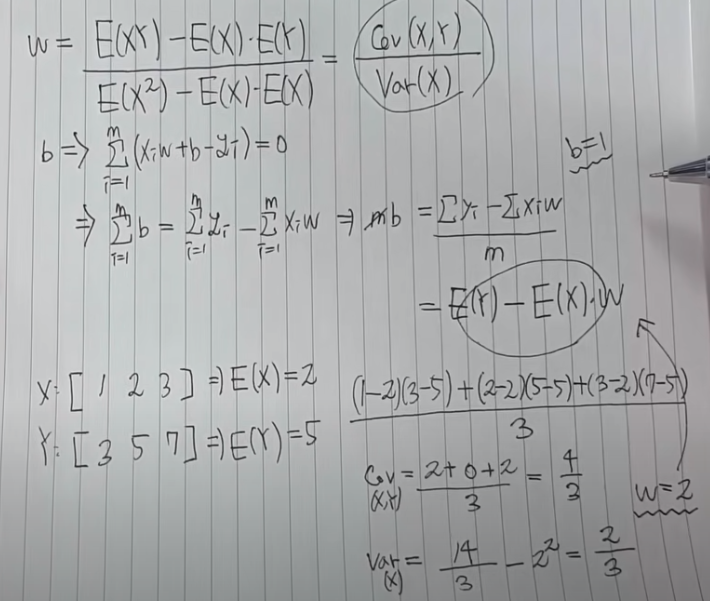 w = (E(XY) - E(X)·E(Y)) / (E(X²) - E(X)·E(X)) = Cov(X,Y) / Var(X)
b ⇒ Σ_{i=1}^{m} (xᵢw + b - yᵢ) = 0
b=1
⇒ Σ_{i=1}^{m} b = Σ_{i=1}^{m} yᵢ - Σ_{i=1}^{m} xᵢw ⇒ mb = (Σyᵢ - Σxᵢw) / m
= E(Y) - E(X)·W
X: [ 1 2 3 ] ⇒ E(X) = 2
Y: [ 3 5 7 ] ⇒ E(Y) = 5
((1-2)(3-5) + (2-2)(5-5) + (3-2)(7-5)) / 3
Cov(X,Y) = (2+0+2) / 3 = 4/3
w=2
Var(X) = 14/3 - 2² = 2/3